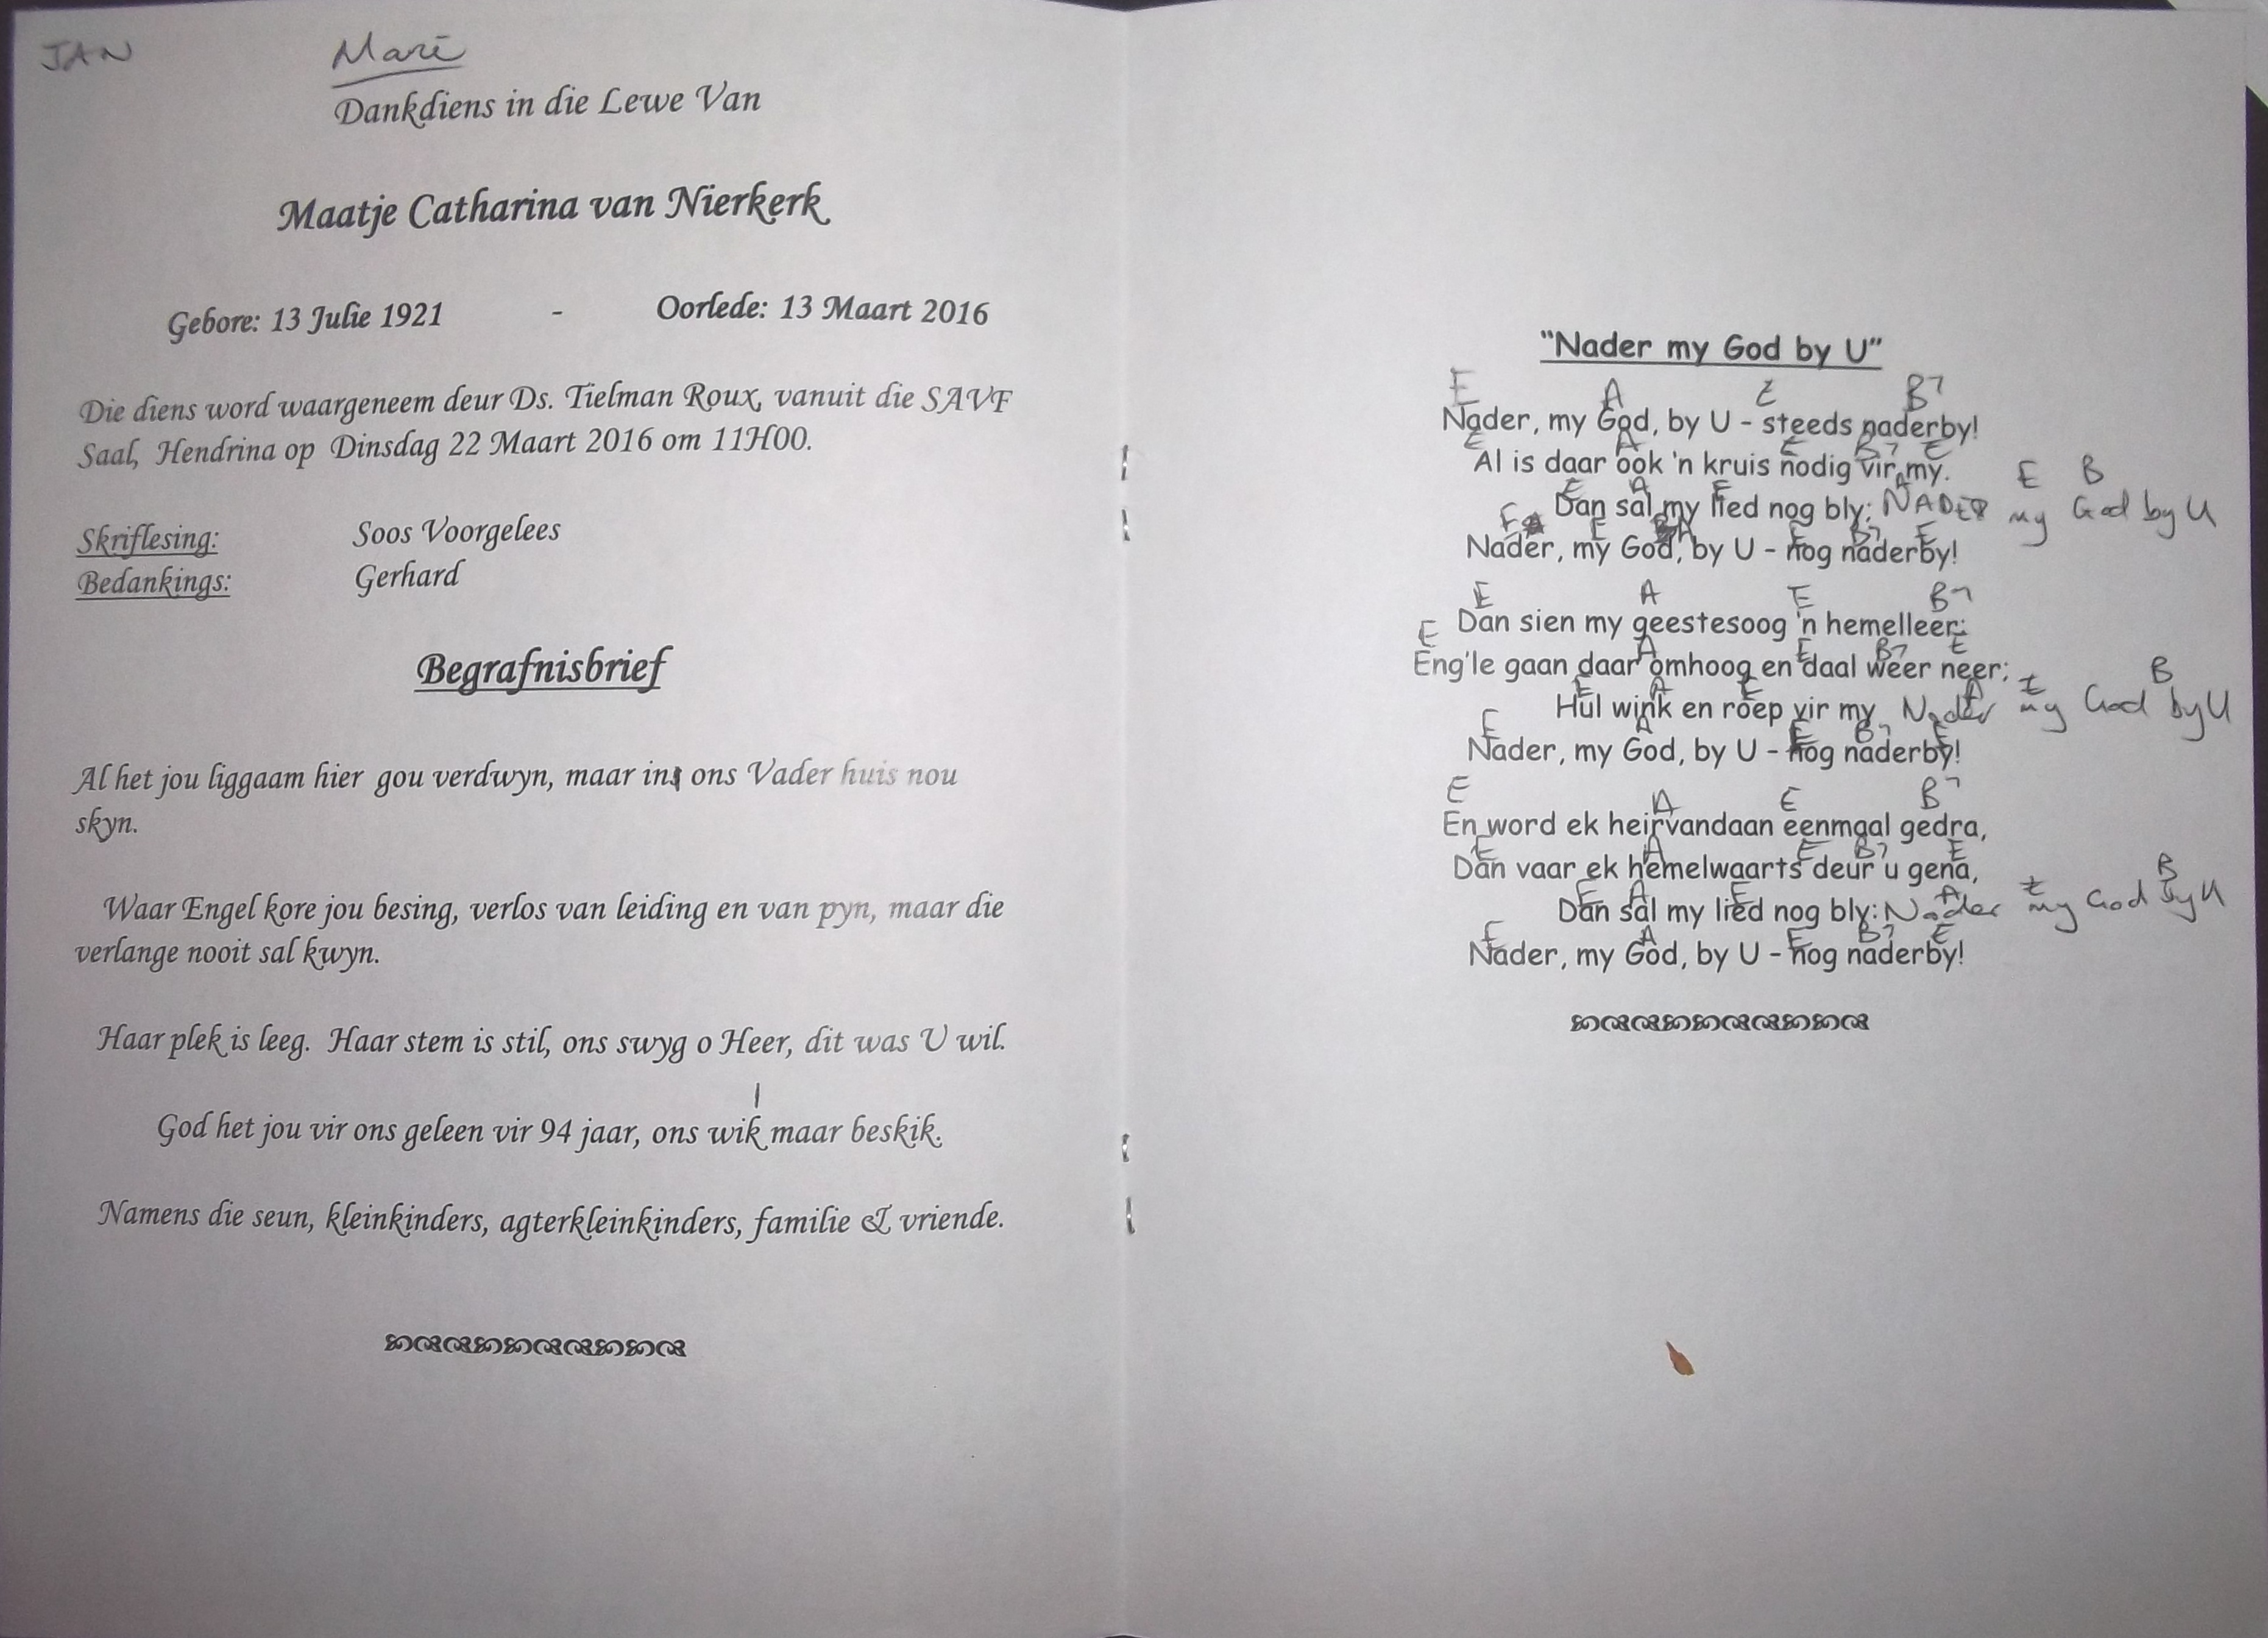 JAN
Maré
Dankdiens in die Lewe Van
Maatje Catharina van Nierkerk
Gebore: 13 Julie 1921 - Oorlede: 13 Maart 2016
Die diens word waargeneem deur Ds. Tielman Roux, vanuit die SAVF
Saal, Hendrina op Dinsdag 22 Maart 2016 om 11H00.
Skriflesing: Soos Voorgelees
Bedankings: Gerhard
Begrafnisbrief
Al het jou liggaam hier gou verdwyn, maar in ons Vader huis nou
skyn.
Waar Engel kore jou besing, verlos van leiding en van pyn, maar die
verlange nooit sal kwyn.
Haar plek is leeg. Haar stem is stil, ons swyg o Heer, dit was U wil.
God het jou vir ons geleen vir 94 jaar, ons wik maar beskik.
Namens die seun, kleinkinders, agterkleinkinders, familie & vriende.
"Nader my God by U"
E A E B7
Nader, my God, by U - steeds naderby!
E A E B7 E
Al is daar ook 'n kruis nodig vir my.
E A E A E B
Dan sal my lied nog bly: NADER my God by U
E A E B7 E
Nader, my God, by U - nog naderby!
E A E B7
Dan sien my geestesoog 'n hemelleer;
E A E B7 E
Eng'le gaan daar omhoog en daal weer neer;
E A E A E B
Hul wink en roep vir my Nader my God by U
E A E B7 E
Nader, my God, by U - nog naderby!
E A E B7
En word ek heirvandaan eenmaal gedra,
E A E B7 E
Dan vaar ek hemelwaarts deur u gena,
E A E A E B
Dan sal my lied nog bly: Nader my God by U
E A E B7 E
Nader, my God, by U - nog naderby!